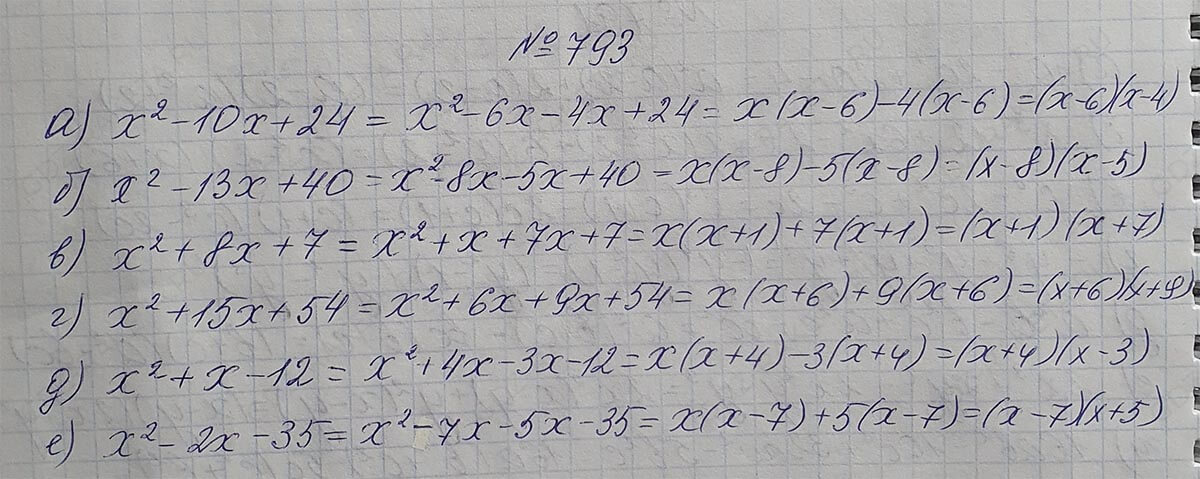 № 793
а) x² - 10x + 24 = x² - 6x - 4x + 24 = x(x-6) - 4(x-6) = (x-6)(x-4)
б) x² - 13x + 40 = x² - 8x - 5x + 40 = x(x-8) - 5(x-8) = (x-8)(x-5)
в) x² + 8x + 7 = x² + x + 7x + 7 = x(x+1) + 7(x+1) = (x+1)(x+7)
г) x² + 15x + 54 = x² + 6x + 9x + 54 = x(x+6) + 9(x+6) = (x+6)(x+9)
д) x² + x - 12 = x² + 4x - 3x - 12 = x(x+4) - 3(x+4) = (x+4)(x-3)
е) x² - 2x - 35 = x² - 7x - 5x - 35 = x(x-7) + 5(x-7) = (x-7)(x+5)